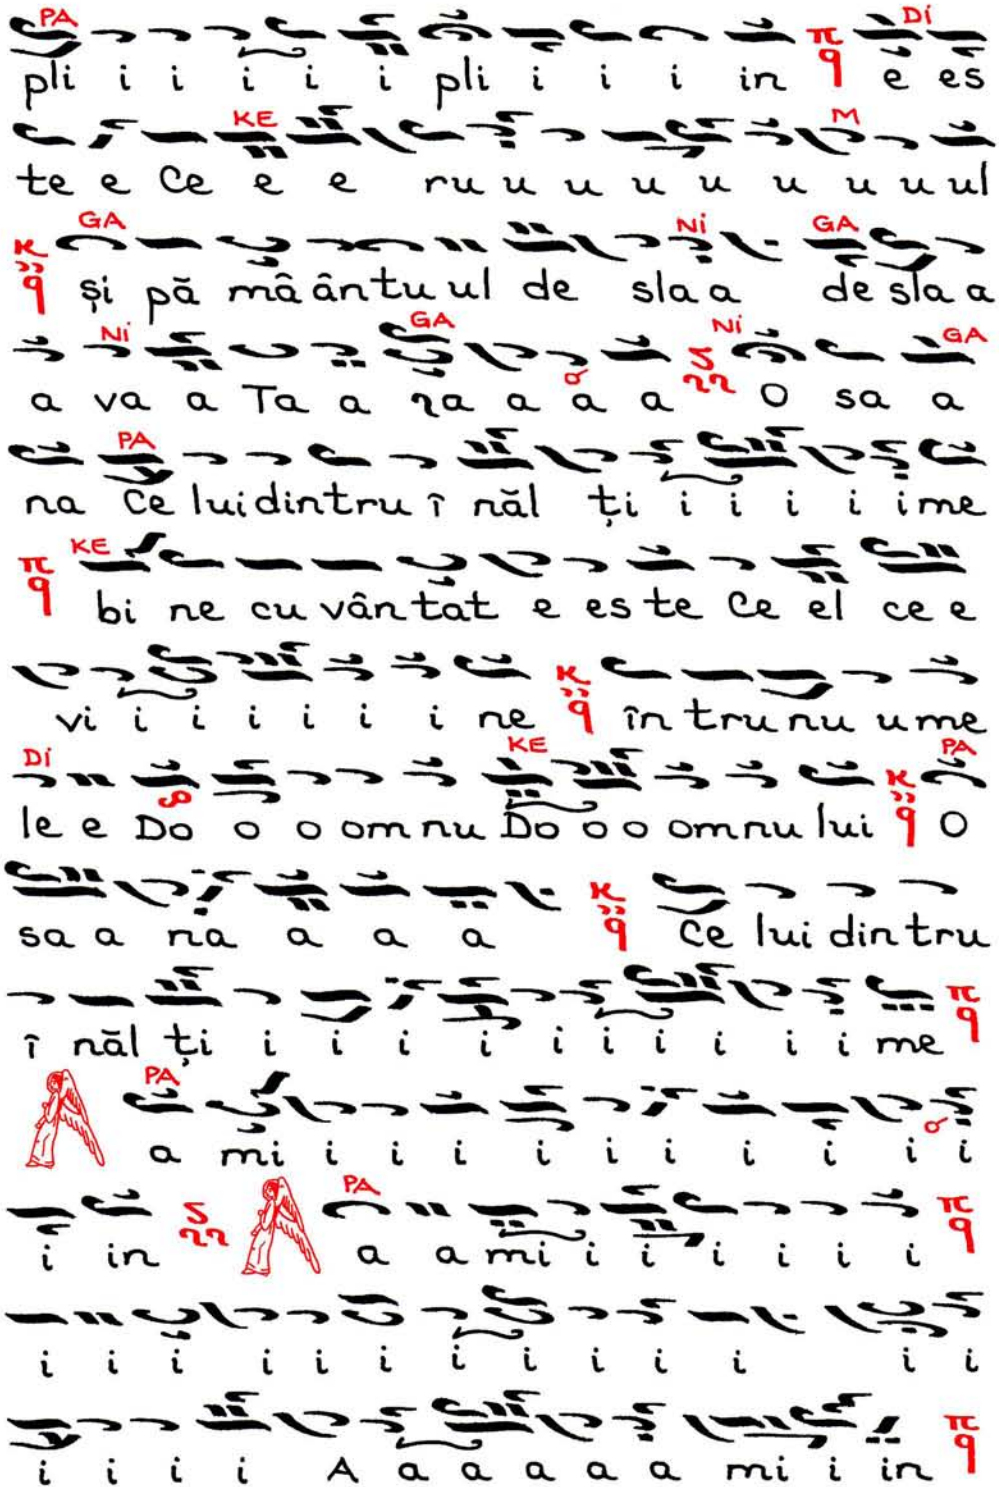 PA Di
pli i i i i i pli i i i in π q e es
KE M
te e Ce e e ru u u u u u u u ul
GA Ni GA
și pă mâ ân tu ul de sla a de sla a
Ni GA Ni GA
a va a Ta a ra a a a O sa a
PA
na Ce lui din tru î năl ți i i i i i me
KE
π q bi ne cu vân tat e es te Ce el ce e
vi i i i i i i ne κ q în tru nu u me
Di KE PA
le e Do o o om nu Do o o om nu lui κ q O
sa a na a a a κ q Ce lui din tru
î năl ți i i i i i i i i i i me π q
PA
A a mi i i i i i i i i i i
PA
i in A a a mi i i i i i i π q
i i i i i i i i i i i i i
i i i i A a a a a a mi i in π q